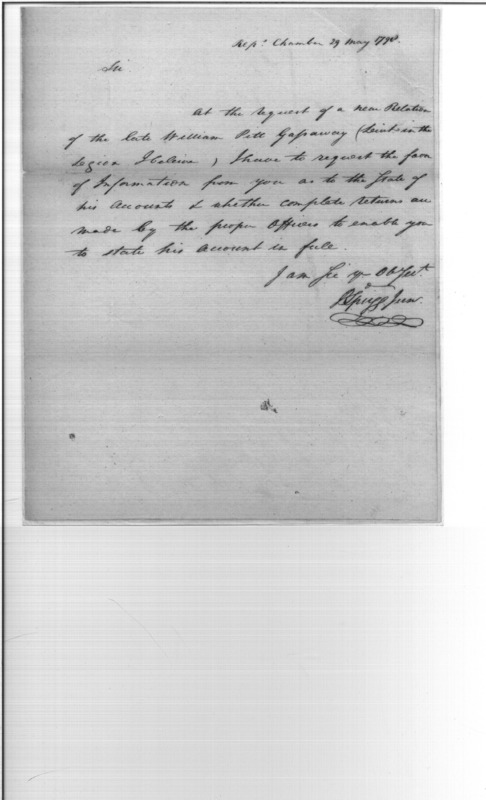 Reps. Chamber 29 May 1798.
Sir
At the request of a near Relation
of the late William Pitt Gassaway (Lieut. in the
Legion I believe) I have to request the favor
of Information from you as to the State of
his Accounts & whether complete returns are
made by the proper Officers to enable you
to state his Account in full.
I am Sir yr Ob Sevt.
R Sprigg Jun.